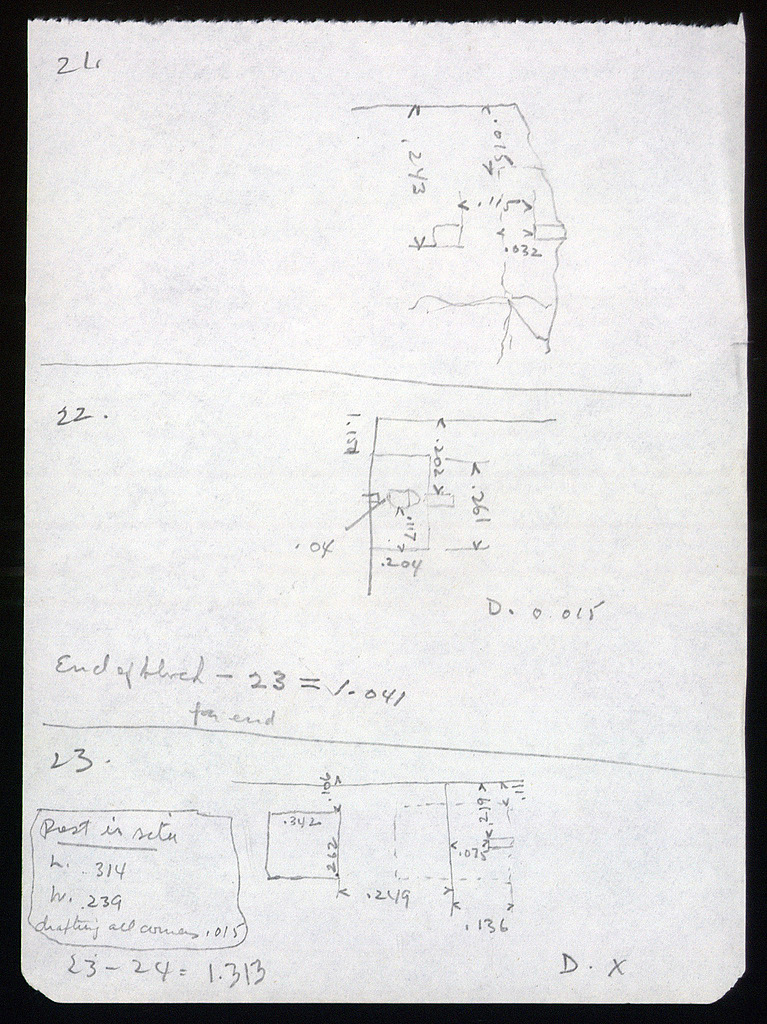 21.
.243
.015
.115
.032
22.
1.159
.202
.261
.04
.117
.204
D. 0.015
End of block - 23 = 1.041
far end
23.
.106
.11
.219
.342
.262
.035
.249
.136
Post in situ
L. .314
W. .239
drafting all corners .015
23-24 = 1.313
D. X